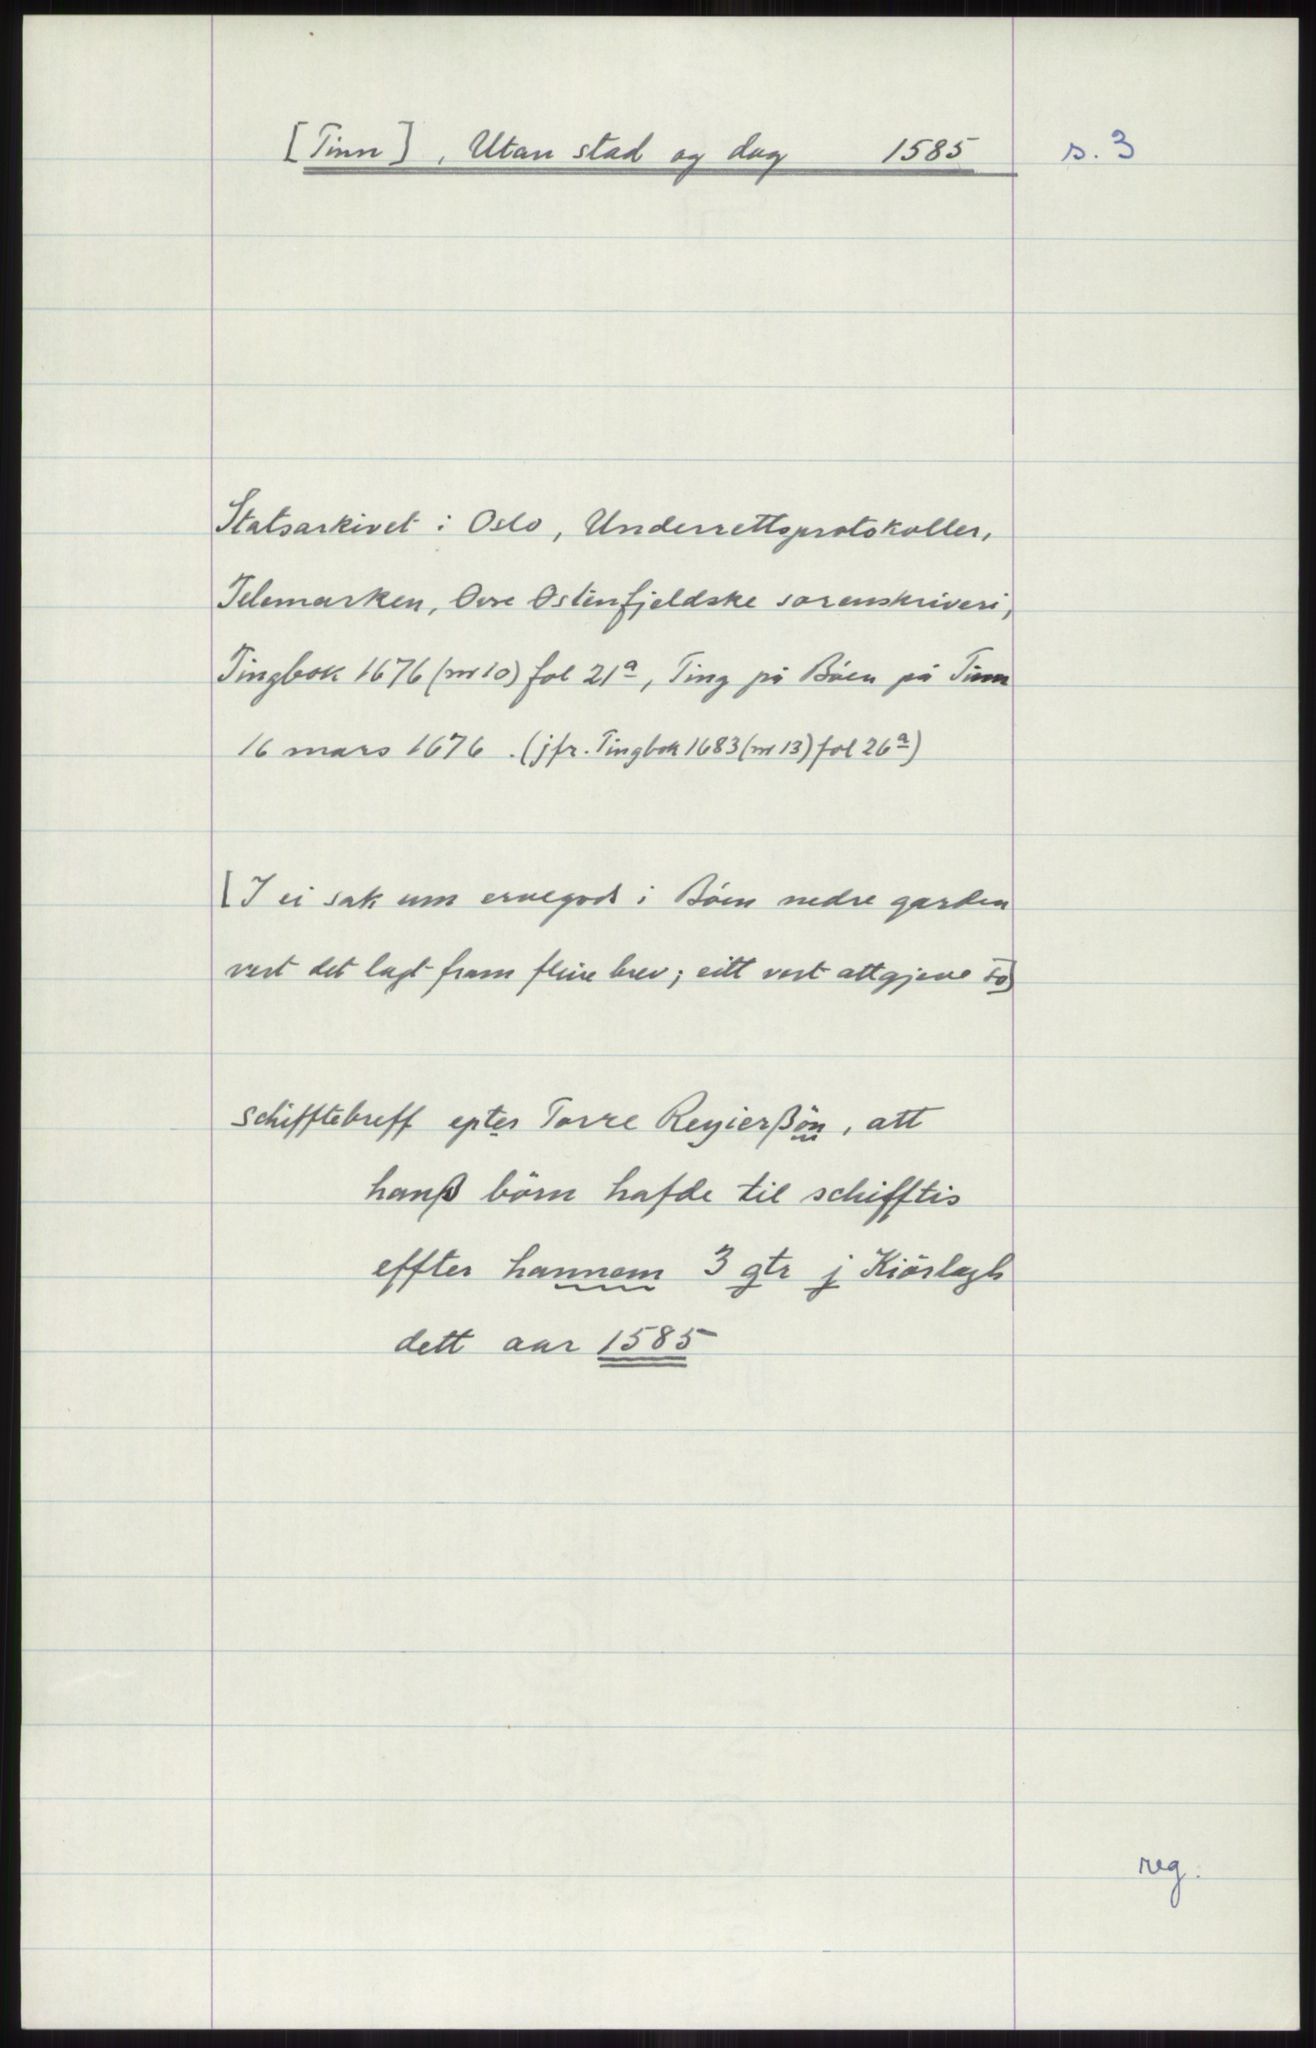 [Tinn], Utan stad og dag 1585 s. 3
Statsarkivet i Oslo, Underrettsprotokoller,
Telemarken, Øvre Østenfjeldske sorenskriveri,
Tingbok 1676 (nr 10) fol 21a, Ting på Bøen på Tinn
16 mars 1676. (jfr. Tingbok 1683 (nr 13) fol 26a)
[I ei sak um ervegods i Bøen nedre garden
vert det lagt fram fleire brev; eitt vert attgjeve so]
schifftebreff epter Torre Regierßön, att
hanß börn hafde til schifftis
effter hannem 3 gtr j Kiörlagh
dett aar 1585
reg.